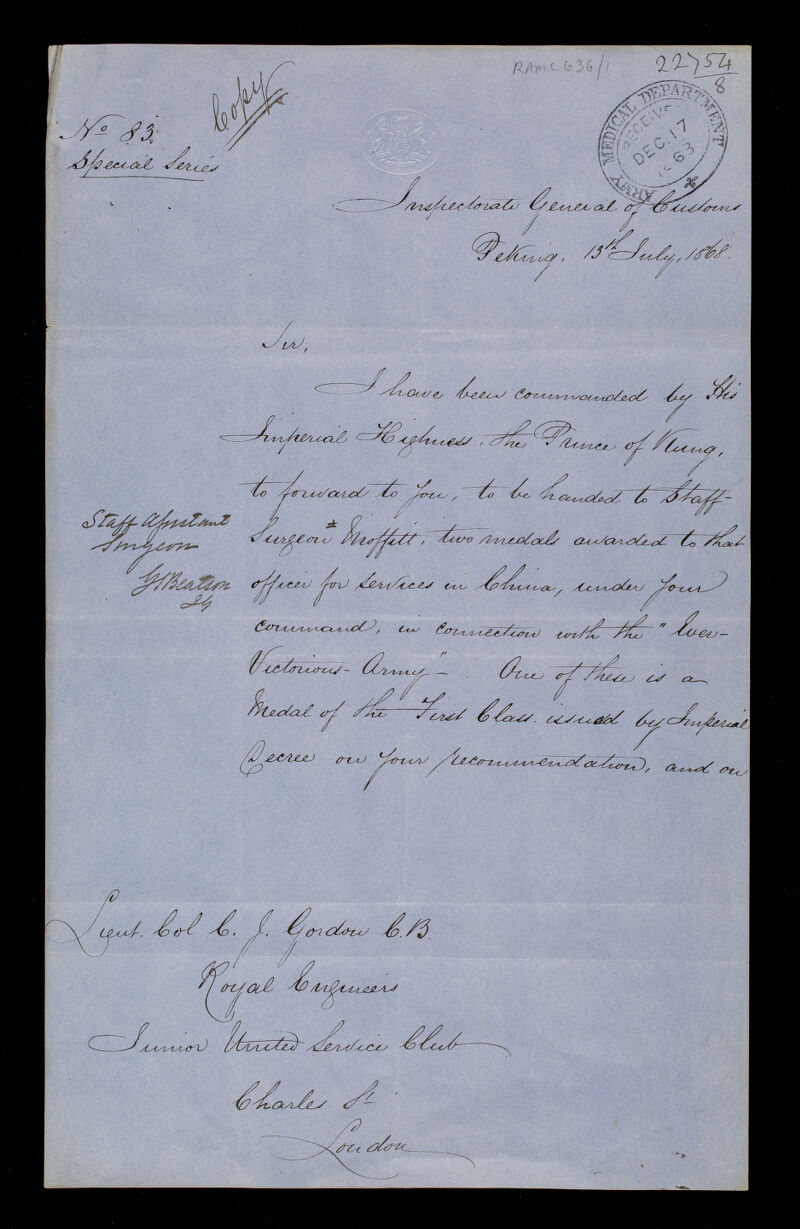 RAMC 636/1
22754/8
Copy
No 83.
Special Series
ARMY MEDICAL DEPARTMENT
RECEIVED
DEC. 17
Inspectorate General of Customs
Peking. 13th July, 1868.
Sir,
I have been commanded by His
Imperial Highness, the Prince of Kung,
to forward to you, to be handed to Staff-
Surgeon Moffitt, two medals awarded to that
officer for services in China, under your
command, in connection with the "Ever-
Victorious-Army"-. One of these is a
Medal of the First Class issued by Imperial
Decree on your recommendation, and on
Staff Assistant
Surgeon
Lieut. Col C. J. Gordon C.B.
Royal Engineers
Junior United Service Club
Charles St
London